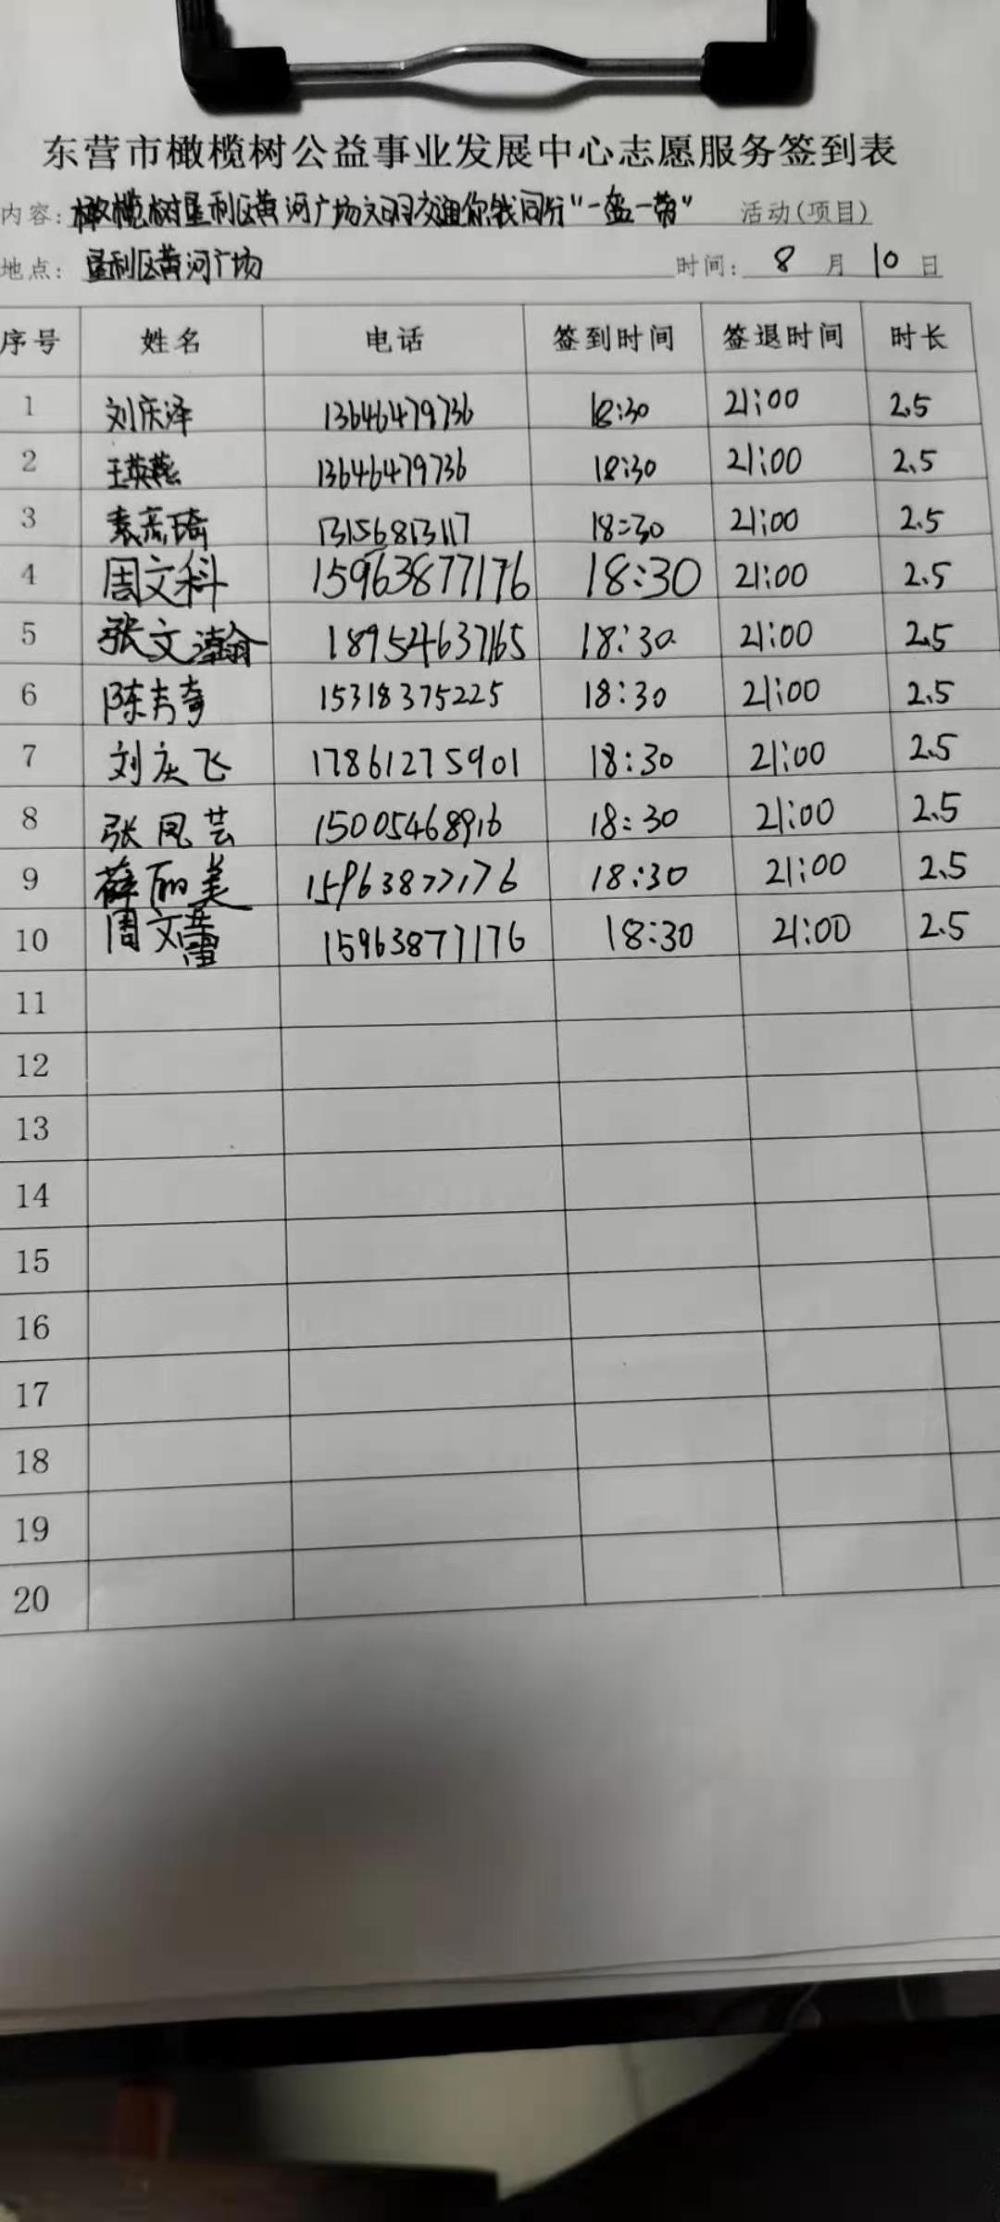 东营市橄榄树公益事业发展中心志愿服务签到表
内容: 橄榄树垦利区黄河广场文明交通你我同行"一盔一带" 活动(项目)
地点: 垦利区黄河广场 时间: 8 月 10 日
序号 姓名 电话 签到时间 签退时间 时长
1 刘庆泽 13646479736 18:30 21:00 2.5
2 王英燕 13646479736 18:30 21:00 2.5
3 袁彦琦 13156813117 18:30 21:00 2.5
4 周文科 15963877176 18:30 21:00 2.5
5 张文瀚 18954637165 18:30 21:00 2.5
6 陈 奇 15318375225 18:30 21:00 2.5
7 刘庆飞 17861275901 18:30 21:00 2.5
8 张凤芸 15005468916 18:30 21:00 2.5
9 薛丽美 15963877176 18:30 21:00 2.5
10 周文 15963877176 18:30 21:00 2.5
11
12
13
14
15
16
17
18
19
20